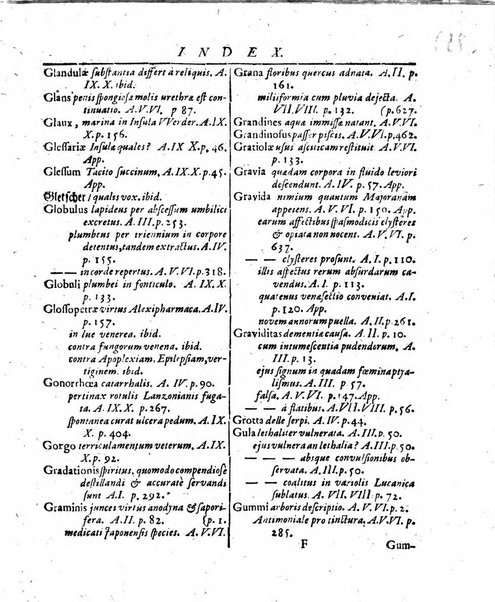 INDEX.
Glandulæ substantia differt à reliquis. A.
IX. X. ibid.
Glans penis spongiosæ molis urethræ est con-
tinuatio. A. V. VI. p 87.
Glaux, marina in Insula VVerder. A. IX.
X. p. 156.
Glessariæ Insulæ quales? A. IX. p. 46.
App.
Glessum Tacito succinum. A. IX. p. 45.
App.
Gletscher / qualis vox. ibid.
Globulus lapideus per abscessum umbilici
excretus. A. III. p. 253.
plumbeus per triennium in corpore
detentus, tandem extractus. A. IV.
p. 155.
— — in corde repertus. A. V. VI. p. 318.
Globuli plumbei in fonticulo. A. IX. X.
p. 133.
Glossopetræ virtus Alexipharmaca. A. IV.
p. 157.
in lue venerea. ibid.
contra fungorum venena. ibid.
contra Apoplexiam. Epilepsiam, ver-
tiginem. ibid.
Gonorrhœa catarrhalis. A. IV. p. 90.
pertinax rotulis Lanzonianis fuga-
ta. A. IX. X. p. 267.
spontanea curat ulcera pedum. A. IX.
X. p. 404.
Gorgo terriculamentum veterum. A. IX.
X. p. 92.
Gradationis spiritus, quomodo compendiose
destillandi & accurate servandi
sunt A. I. p. 292.
Graminis junceï virtus anodyna & sapori-
fera. A. II. p. 82. (p. 1.
medicati Japonensis species. A. V. VI.
Grana floribus quercus adnata. A. II. p.
161.
miliiformia cum pluvia dejecta. A.
VII. VIII. p. 132. (p. 627.
Grandines aquæ immissæ natant. A. V. VI.
Grandinosus passer piscis. A. V. VI. p. 462.
Gratiolæ usus ascitcam restituit. A. V. VI.
p. 133.
Gravia quædam corpora in fluido leviori
descendunt. A. IV. p. 57. App.
Gravida nimium quantum Majoranam
appetens. A. V. VI. p. 150. App.
earum affectibus spasmodicis clysteres
& opiata non nocent. A. V. VI. p.
637.
— — clysteres prosunt. A. I. p. 110.
illis aspectus rerum absurdarum ca-
vendus. A. I. p. 13.
quatenus venæsectio conveniat. A. I.
p. 120. App.
novem annorum puella. A. II. p. 261.
Graviditas dementiæ causa. A. II. p. 38.
cum intumescentia pudendorum. A.
III. p. 13.
ejus signum in quadam fœmina ptya-
lismus. A. III. p. 57.
falsa, A. V. VI. p. 147. App.
— — à flatibus. A. VII. VIII. p. 56.
Grotta delle serpi. A. IV. p. 44.
Gula lethaliter vulnerata. A. III. p. 50.
ejus vulnera an lethalia? A. III. p. 50.
— — — absque convulsionibus ob-
servata. A. III. p. 50.
— — coalitus in variolis Lucanica
sublatus. A. VII. VIII. p. 72.
Gummi arboris descriptio. A. V. VI. p. 2.
Antimoniale pro tinctura. A. V. VI. p.
285.
F Gum-